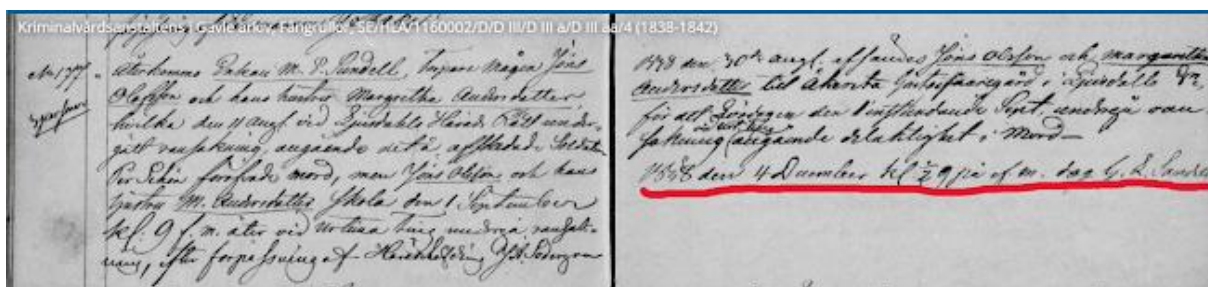 Kriminalvårdsanstaltens i Gävle arkiv, Fångrullor, SE/HLA/1160002/D/D III/D III a/D III aa/4 (1838-1842)
No 177
återkommo Enkan M. P. Rundell, Torpare Mågen Jöns
Olofsson och hans hustru Margretha Andersdotter
hvilka den 11 Augt vid Ljusdahls Härads Rätt under-
gått ransakning, angående det å afskedade Soldaten
Per Schön föröfvade mord, men Jöns Olofson och hans
hustru M. Andersdotter skola den 1 September
kl. 9 f. m. åter vid urtima ting undergå ransak-
ning, efter förpassning af Häradshöfding
1838 den 30de augt. afsändes Jöns Olsson och margaretha
Andersdotter till Åkersta Gästgifvaregård i Ljusdahls
för att Lördagen den 1 instundande Sept. undergå ran-
sakning angående delaktighet i Mord
1838 den 4 December kl ½ 9 på ef m. dog